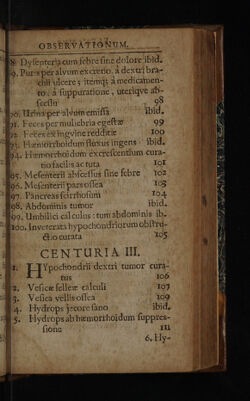 OBSERVATIONUM.
8 Dysenteria cum febre sine dolore ibid.
9. Puris per alvum excretio. à dextri bra-
chii ulcere; itemq; à medicamen-
to à suppuratione, uteriqve ab-
scessu 98
90. Urina per alvum emissa ibid.
91. Feces per muliebria egestæ 99
92. Feces ex ingvine redditæ 100
93. Hæmorrhoidum fluxus ingens ibid.
94. Hæmorrhoidum excrescentium cura-
tio facilis ac tuta 101
95. Mesenterii abscessus sine febre 102
96. Mesenterii pars ossea 103
97. Pancreas scirrhosum 104
98. Abdominis tumor ibid.
99. Umbilici calculus: tum abdominis ib.
100. Inveterata hypochondriorum obstru-
ctio curata 105
CENTURIA III.
1. Hypochondrii dextri tumor cura-
tus 106
2. Vesicæ felleæ calculi 107
3. Vesica vellis ossea 109
4. Hydrops jecore sano ibid.
5. Hydrops ab hæmorrhoidum suppres-
sione 111
6. Hy-